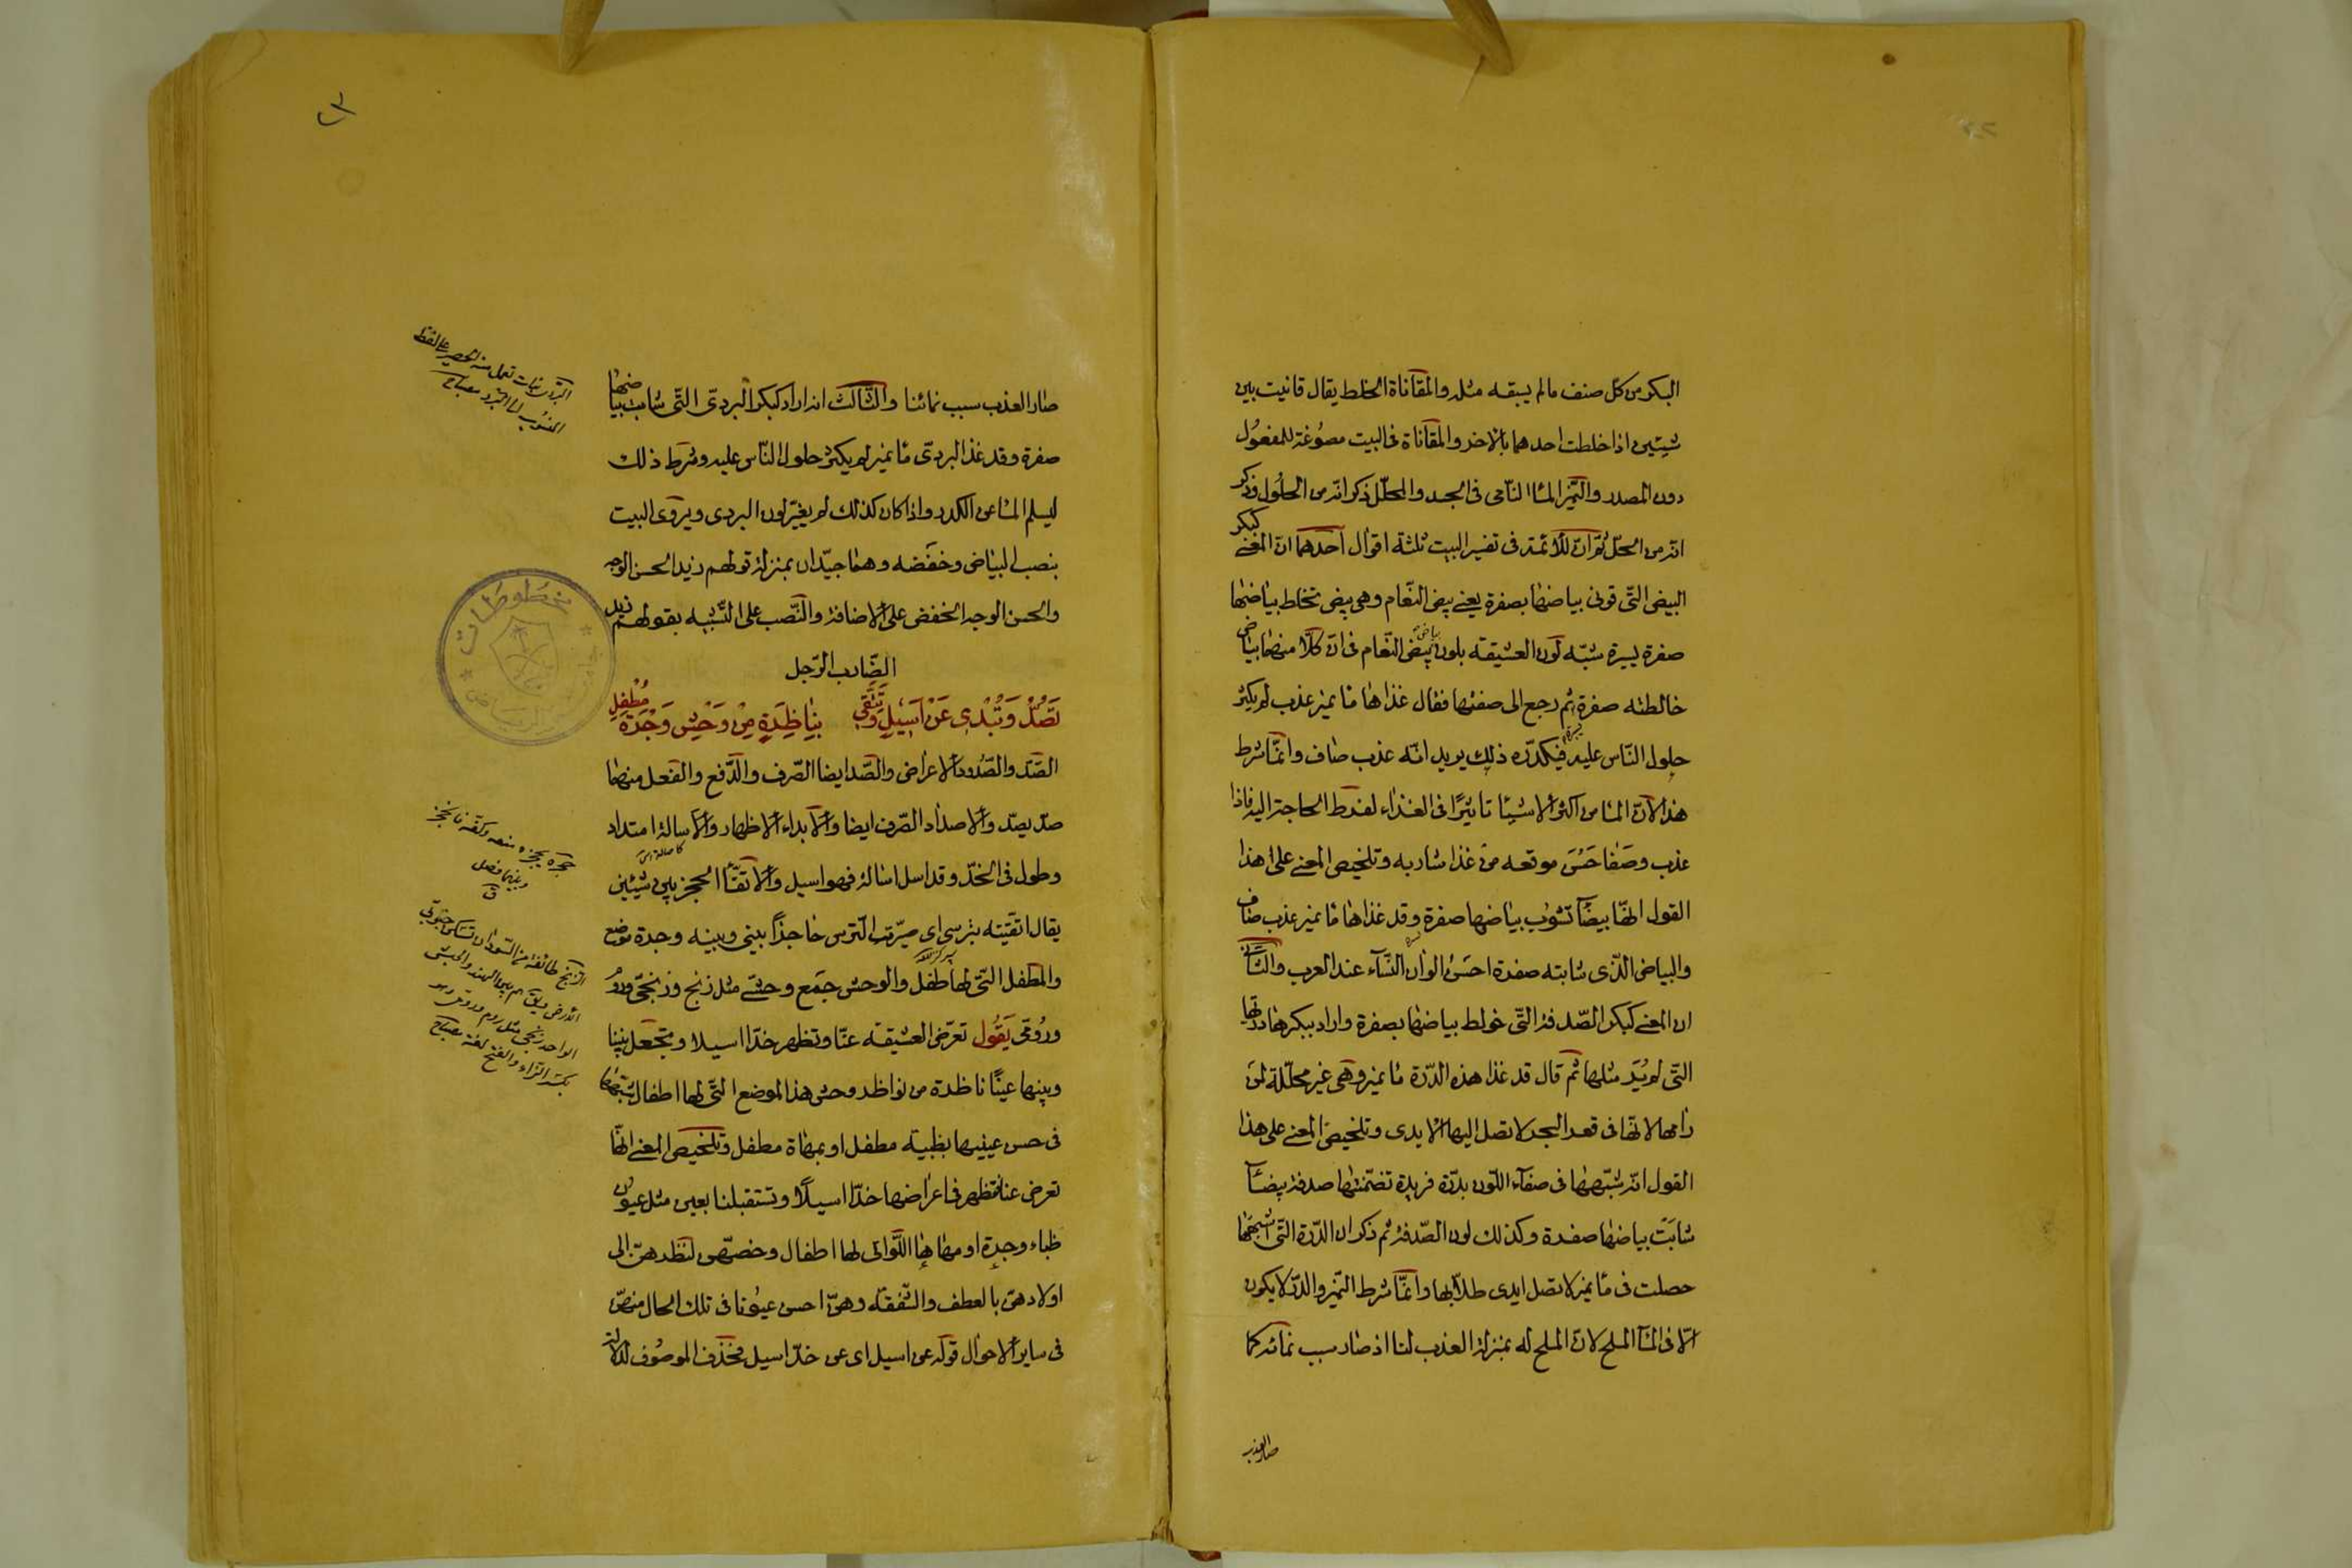 البكر من كل صنف مالم يسبقه مثله والمقاناة الخلط يقال قانيت بين
شيئين اذا خلطت احدهما بالاخر والمقاناة فى البيت مصوغة للمفعول
دون المصدر والنمير الماء النامى فى الجسد والمحلل ذكر انه من الحلول وذكر
انه من الحل ثم ان للائمة فى تفسير البيت ثلثة اقوال احدهما ان المعنى كبكر
البيض التى قونى بياضها بصفرة يعنى بيض النعام وهى بيض تخالط بياضها
صفرة يسيرة شبه لون العشيقة بلون بياض بيض النعام فى ان كلا منهما بياض
خالطته صفرة ثم رجع الى صفتها فقال غذاها ماء نمير عذب لم يكثر
حلول الناس عليه فيكدره ذلك يريد انه عذب صاف وانما شرط
هذا لان الماء من اكثر الاشياء تاثيرًا فى الغذاء لفرط الحاجة اليه فاذا
عذب وصفا حسن موقعه من غذا شاربه وتلخيص المعنى على هذا
القول انها بيضاء تشوب بياضها صفرة وقد غذاها ماء نمير عذب صاف
والبياض الذى شابته صفرة احسن الوان النساء عند العرب والثانى
ان المعنى كبكر الصدفة التى خولط بياضها بصفرة واراد ببكرها درتها
التى لم يُرَ مثلها ثم قال قد غذا هذه الدرة ماء نمير وهى غير محللة لمن
رامها لانها فى قعر البحر لا تصل اليها الايدى وتلخيص المعنى على هذا
القول انه شبهها فى صفاء اللون بدرة فريدة تضمنتها صدفة بيضاء
شابت بياضها صفرة وكذلك لون الصدفة ثم ذكر ان الدرة التى اشبهتها
حصلت فى ماء نمير لا تصل ايدى طلابها وانما شرط النمير والدر لا يكون
الا فى الماء الملح لان الملح له بمنزلة العذب لنا اذ صار سبب نمائه كما
صار العذب
صار العذب سبب نمائنا والثالث انه اراد كبكر البردى التى شاب بياضها
صفرة وقد غذا البردى ماء نمير لم يكثر حلول الناس عليه وشرط ذلك
ليسلم الماء عن الكدر واذا كان كذلك لم يغير لون البردى ويروى البيت
بنصب البياض وخفضه وهما جيدان بمنزلة قولهم زيد الحسن الوجه
والحسن الوجه الخفض على الاضافة والنصب على التشبيه بقولهم زيد
الضارب الرجل
تَصُدُّ وَتُبْدِى عَنْ اَسِيلٍ وَتَتَّقِى بِنَاظِرَةٍ مِنْ وَحْشِ وَجْرَةَ مُطْفِلِ
الصد والصدود الاعراض والصد ايضا الصرف والدفع والفعل منهما
صد يصد والاصداد الصرف ايضا والابداء الاظهار والاسالة امتداد
وطول فى الخد وقد اسل اسالة فهو اسيل والاتقاء الحجز بين شيئين
يقال اتقيته بترسى اى صيرت الترس حاجزًا بينى وبينه وجرة موضع
والمطفل التى لها طفل والوحش جمع وحشى مثل زنج وزنجى وروم
ورومى يقول تعرض العشيقة عنا وتظهر خدا اسيلا وتجعل بيننا
وبينها عينًا ناظرة من نواظر وحش هذا الموضع التى لها اطفال شبهها
فى حسن عينيها بظبية مطفل او بمهاة مطفل وتلخيص المعنى انها
تعرض عنا فتظهر فى اعراضها خدا اسيلًا وتستقبلنا بعين مثل عيون
ظباء وجرة او مهاها اللواتى لها اطفال وخصهن لنظرهن الى
اولادهن بالعطف والشفقة وهن احسن عيونا فى تلك الحال منهن
فى ساير الاحوال قوله عن اسيل اى عن خد اسيل فحذف الموصوف لدلالة
مخطوطات